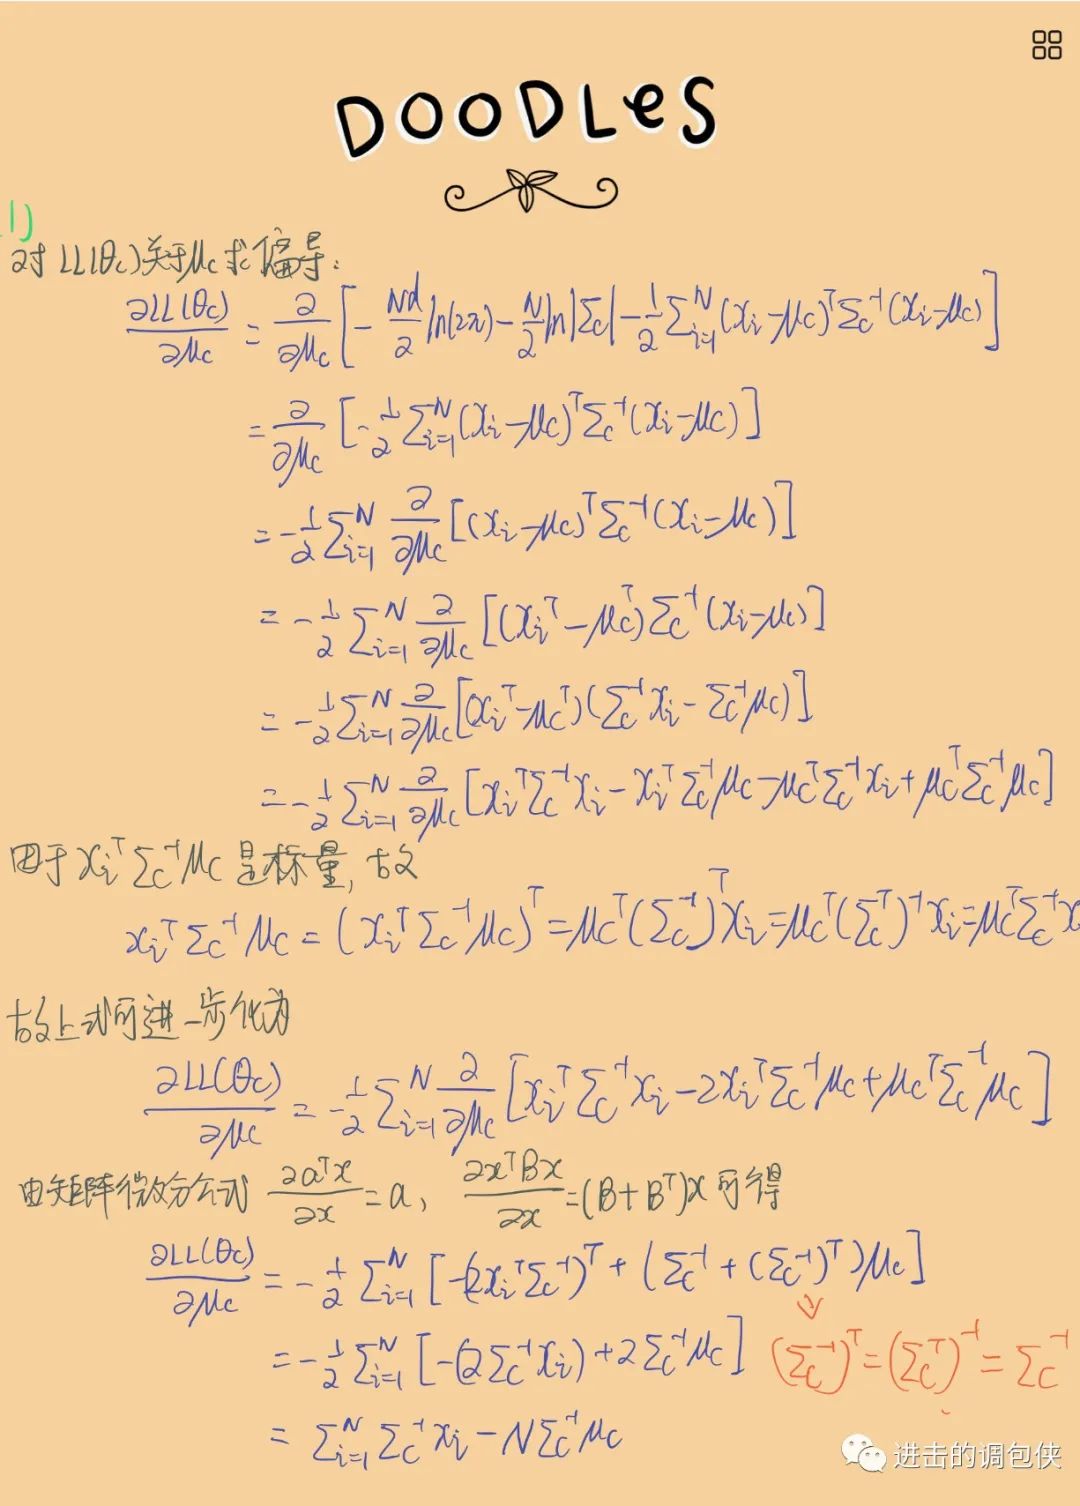 DOODLES
1)
对 LL(θc) 关于 μc 求偏导:
∂LL(θc)/∂μc = ∂/∂μc [-Nd/2 ln(2π) - N/2 ln|Σc| - 1/2 Σ_{i=1}^N (xi-μc)^T Σc^-1 (xi-μc)]
= ∂/∂μc [-1/2 Σ_{i=1}^N (xi-μc)^T Σc^-1 (xi-μc)]
= -1/2 Σ_{i=1}^N ∂/∂μc [(xi-μc)^T Σc^-1 (xi-μc)]
= -1/2 Σ_{i=1}^N ∂/∂μc [(xi^T-μc^T) Σc^-1 (xi-μc)]
= -1/2 Σ_{i=1}^N ∂/∂μc [(xi^T-μc^T)(Σc^-1 xi - Σc^-1 μc)]
= -1/2 Σ_{i=1}^N ∂/∂μc [xi^T Σc^-1 xi - xi^T Σc^-1 μc - μc^T Σc^-1 xi + μc^T Σc^-1 μc]
由于 xi^T Σc^-1 μc 是标量, 故
xi^T Σc^-1 μc = (xi^T Σc^-1 μc)^T = μc^T (Σc^-1)^T xi = μc^T (Σc^T)^-1 xi = μc^T Σc^-1 x
故上式可进一步化为
∂LL(θc)/∂μc = -1/2 Σ_{i=1}^N ∂/∂μc [xi^T Σc^-1 xi - 2xi^T Σc^-1 μc + μc^T Σc^-1 μc]
由矩阵微分公式 ∂a^T x/∂x = a, ∂x^T Bx/∂x = (B+B^T)x 可得
∂LL(θc)/∂μc = -1/2 Σ_{i=1}^N [-(2xi^T Σc^-1)^T + (Σc^-1 + (Σc^-1)^T) μc]
= -1/2 Σ_{i=1}^N [-(2Σc^-1 xi) + 2Σc^-1 μc] (Σc^-1)^T = (Σc^T)^-1 = Σc^-1
= Σ_{i=1}^N Σc^-1 xi - NΣc^-1 μc
进击的调包侠